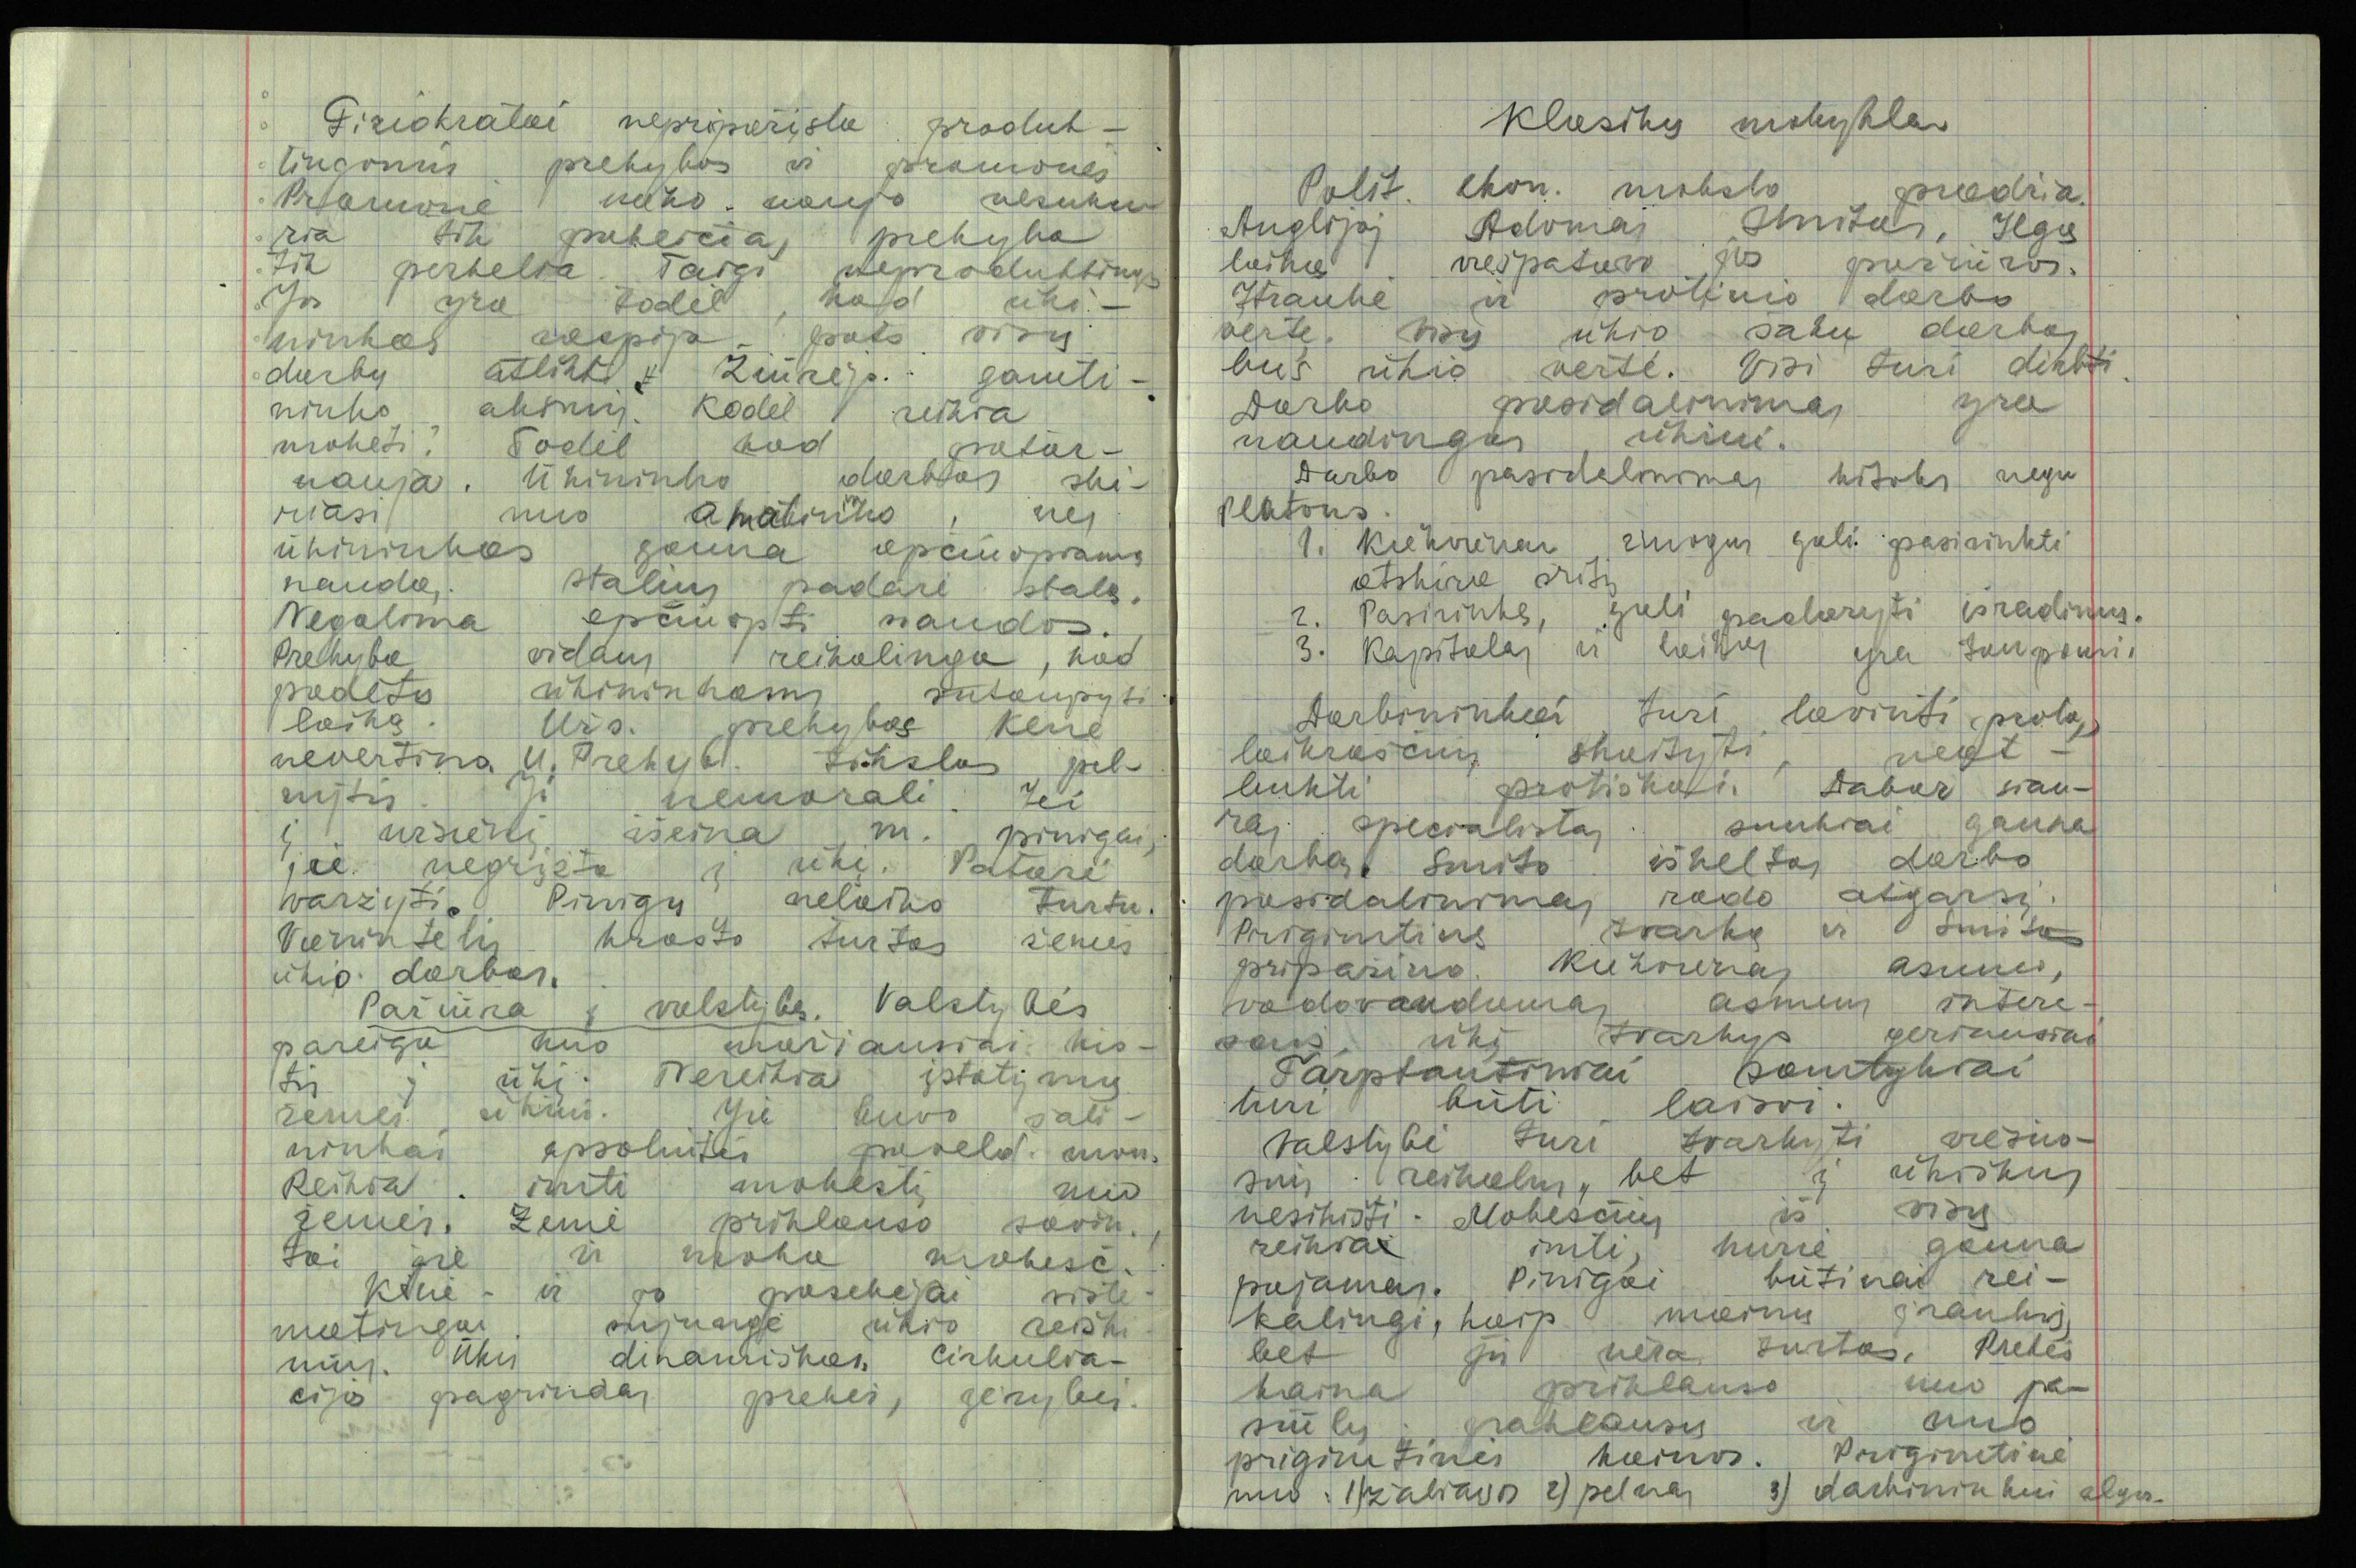 Fiziokratai nepripažįsta produk-
tingomis prekybos ir pramonės
Pramonė nieko naujo nesuku-
ria tik pakeičia, prekyba
tik perkelia. Taigi neproduktingos
Jos yra todėl, kad ūki-
ninkas rūpijo pats visų
darbų atlikti. Žiūrėjo gamti-
ninko akimis. Kodėl reikia
mokėti? Todėl kad patar-
nauja. Ūkininko darbas ski-
riasi nuo amatininko, nes
ūkininkas gauna apčiuopiamą
naudą. Stalius padarė stalą.
Negalima apčiuopti naudos.
Prekyba vidaus reikalinga, kad
padėtų ūkininkams sutaupyti
laiką. Užs. prekybos Kenė
nevertina. U. Prekyb. tikslas pel-
nytis. Ji nemorali. Jei
į užsienį išeina m. pinigai,
jie negrįžta į ūkį. Patarė
varžyti. Pinigų nelaiko turtu.
Vienintelis krašto turtas žemės
ūkio darbas.
Pažiūra į valstybę. Valstybės
pareiga kuo mažiausiai kiš-
tis į ūkį. Nereikia įstatymų
žemės ūkiui. Jie buvo šali-
ninkai apsoliutės paveld. mon.
Reikia imti mokestį nuo
žemės. Žemė priklauso savin.,
tai jie ir moka mokesč.
Kenė ir jo pasekėjai siste-
matingai sujungė ūkio reiški-
nius. Ūkis dinamiškas. Cirkulia-
cijos pagrindas prekės, gėrybės.
Klasikų mokykla
Polit. ekon. mokslo pradžia
Anglijoj Adomas Smitas. Ilgą
laiką viešpatavo jos pažiūros.
Įtraukė ir protinio darbo
vertę. Visų ūkio šakų darbas
bus ūkio vertė. Visi turi dirbti.
Darbo pasidalinimas yra
naudingas ūkiui.
Darbo pasidalinimas kitoks negu
Platono.
1. Kiekvienas žmogus gali pasirinkti
atskirą sritį
2. Pasirinkęs, gali padaryti išradimus.
3. Kapitalas ir laikas yra taupomi.
Darbininkai turi lavinti protą,
laikraščius skaityti, neat-
bukti protiškai. Dabar siau-
ras specialistas sunkiai gauna
darbą. Smito iškeltas darbo
pasidalinimas rado atgarsį.
Prigimtinę tvarką ir Smitas
pripažino. Kiekvienas asmuo,
vadovaudamas asmens intere-
sais, ūkį tvarkys geriausiai
Tarptautiniai santykiai
turi būti laisvi.
Valstybė turi tvarkyti viešuo-
sius reikalus, bet į ūkiškus
nesikišti. Mokesčius iš visų
reikia imti, kurie gauna
pajamas. Pinigai būtinai rei-
kalingi, kaip mainų įrankis,
bet jis nėra turtas. Prekės
kaina priklauso nuo pa-
siūlos paklausos ir nuo
prigimtinės kainos. Prigimtinė
nuo: 1) žaliavos 2) pelnas 3) darbininkui alga.